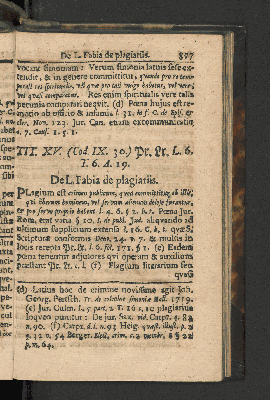 De L. Fabia de plagiariis. 877
vocant simoniam: Verum simonia latius sese ex-
tendit, & in genere committitur, quando pro re tem-
porali res spiritualis, vel quae pro tali modo habetur, vel vere,
vel quasi comparatur. Res enim spiritualis vere talis
pecunia comparari nequit. (d) Poena hujus est re-
motio ab officio & infamia l. 31. h. C. de Ep.
Nov. 123. Jur. Can. etiam excommunicatio,
TIT. XV. (Cod. IX. 20.) Pr. Lr. L. 6.
T. 6. A. 19.
De L. Fabia de plagiariis.
Plagium est crimen publicum, quod committitur ab illis,
qui liberum hominem, vel servum alienum dolose
et pro servo proprio habent l. 4. 6. § 2. h. t. Poena Jur.
Rom. erat varia § 10. I. de publ. Jud. aliquando ad
ultimum supplicium extensa l. 16. C. h. t. quae
Scripturae conformis Deut. 24. n. 7. & multis in
locis recepta Pr. Lr. l. 6. tit. § 1. (e) Eadem
poena tenentur adjutores qui operam & auxilium
praestant Pr. Lr. c. l. (f) Plagium literarium sen-
(d) Latius hoc de crimine novissime agit Joh.
Georg. Pertsch. Tr. de crimine simoniae Hall. 1719.
(e) Jur. Culm. l. 5. part. 2. T. 16. 10 plagiarius
laqueo punitur: De jur. Sax. vid. Carpz. 84
n. 90. (f) Carpz. d. l. n. 93 Heig.
n. 32. n. 54 Berger. Elect. crim. § 22
p. m. 64.